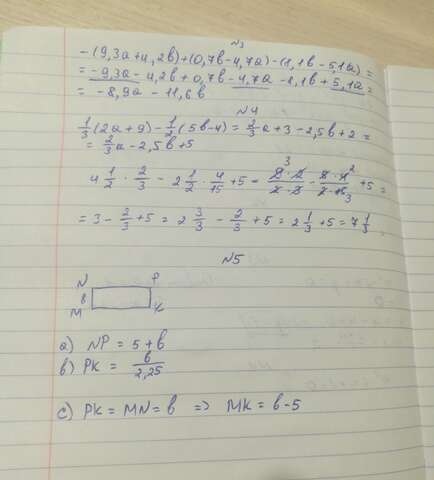 №3
-(9,3a+4,2b)+(0,7b-4,7a)-(1,1b-5,1a)=
= -9,3a-4,2b+0,7b-4,7a-1,1b+5,1a=
= -8,9a-11,6b
№4
1/3(2a+9)-1/2(5b-4)=2/3a+3-2,5b+2=
= 2/3a-2,5b+5
4 1/2 · 2/3 - 2 1/2 · 4/15 +5 = 9·2/2·3 - 5·4/2·15 +5 =
= 3 - 2/3 +5 = 2 3/3 - 2/3 +5 = 2 1/3 +5 = 7 1/3
№5
N P
b
M K
a) NP = 5+b
b) PK = b/2,25
c) PK = MN = b => MK = b-5